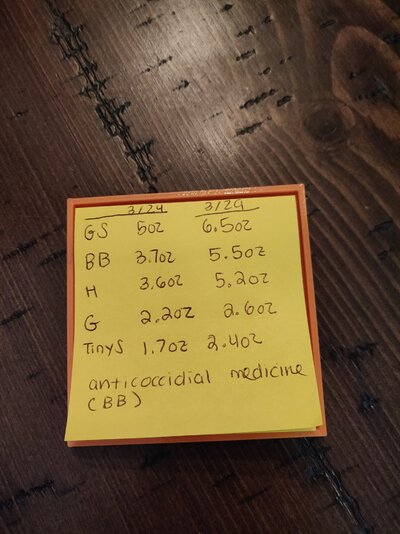 3/24 3/29
GS 5oz 6.5oz
BB 3.7oz 5.5oz
H 3.6oz 5.2oz
G 2.2oz 2.6oz
TinyS 1.7oz 2.4oz
anticoccidial medicine
(BB)